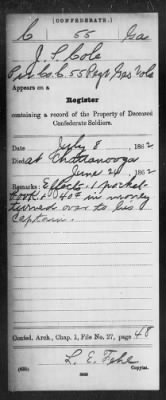 (CONFEDERATE.)
C 55 Ga
J. S. Cole
Pvt. Co. C. 55 Regt. Gas Vols
Appears on a
Register
containing a record of the Property of Deceased
Confederate Soldiers.
Date July 8, 1862
Died at Chattanooga
June 24 1862
Remarks: Effects. 1 pocket-
book. in money
turned over to his
Captain.
Confed. Arch., Chap. 1, File No. 27, page 48
L. E. Fehl
Copyist.